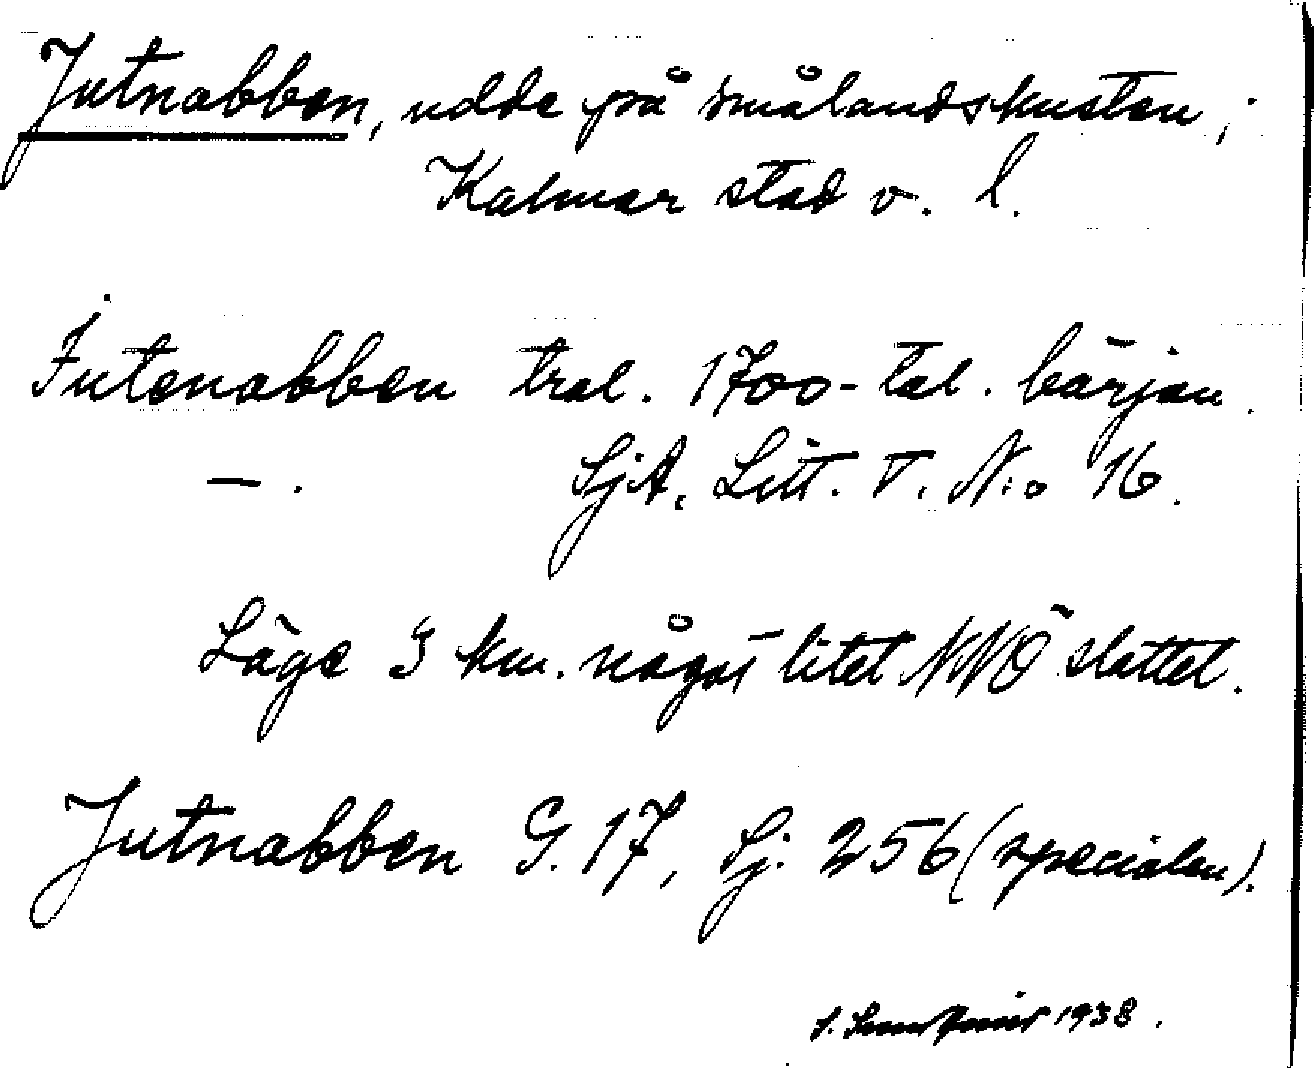 Jutnabben, udde på smålandskusten;
Kalmar stad o. l.
Jutenabben tral. 1700-tal. början.
— . SjA, Litt. V. N:o 16.
Läge 3 km. något litet NNÖ slottet.
Jutnabben G. 17, Sj. 256 (specialen).
1938.